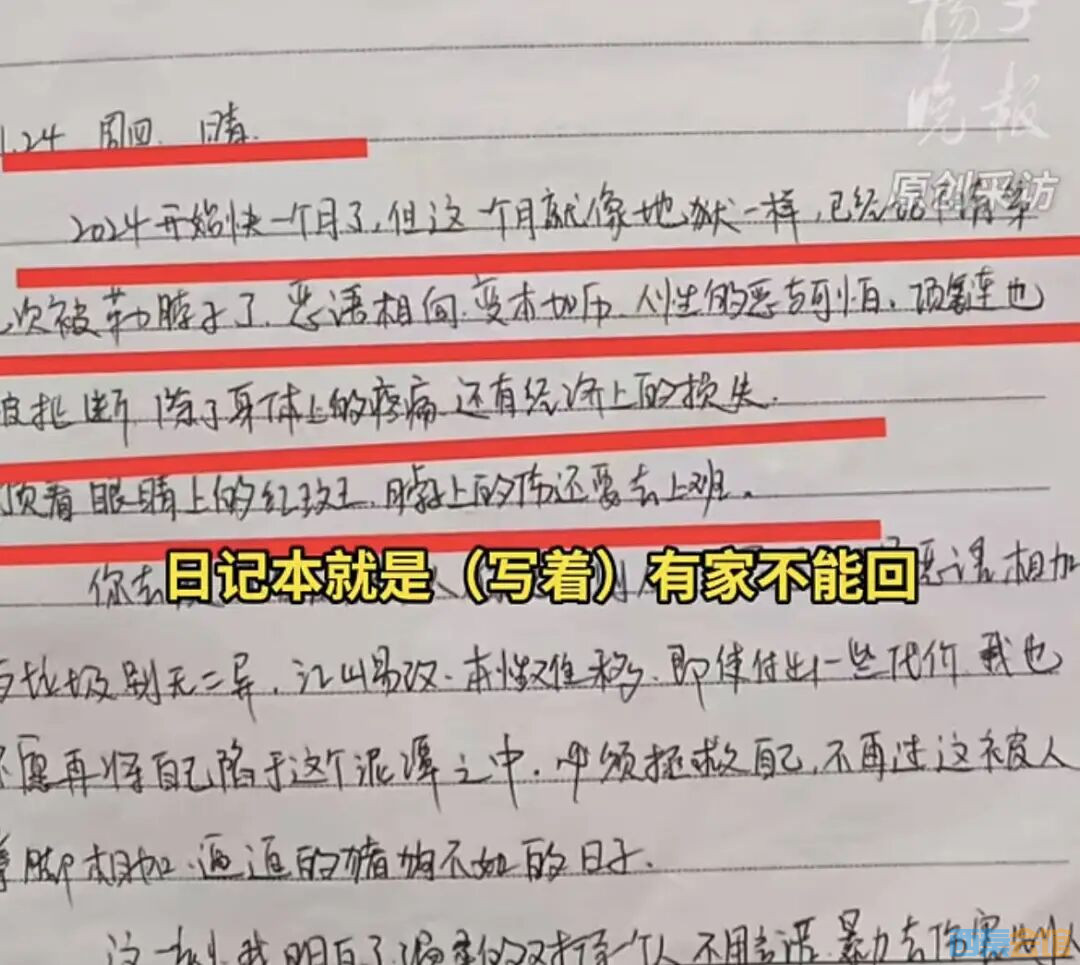 扬子
晚报
原创采访
1.24 周四. 晴.
2024开始快一个月了,但这一个月就像地狱一样,已经
次被勒脖子了.恶语相向.变本加历.人性的恶与可怕.项链也
被扯断 除了身体上的疼痛.还有经济上的损失.
顶着眼睛上的红 脖子上的伤还要去上班.
你去 恶语相加
日记本就是（写着）有家不能回
与垃圾别无二异.江山易改.本性难移.即使付出一些代价 我也
不愿再将自己陷于这个泥潭之中.必须拯救自己.不再过这被人
拳脚相加. 的猪狗不如的日子.
我明白了 一个人 不用言语.暴力去伤害